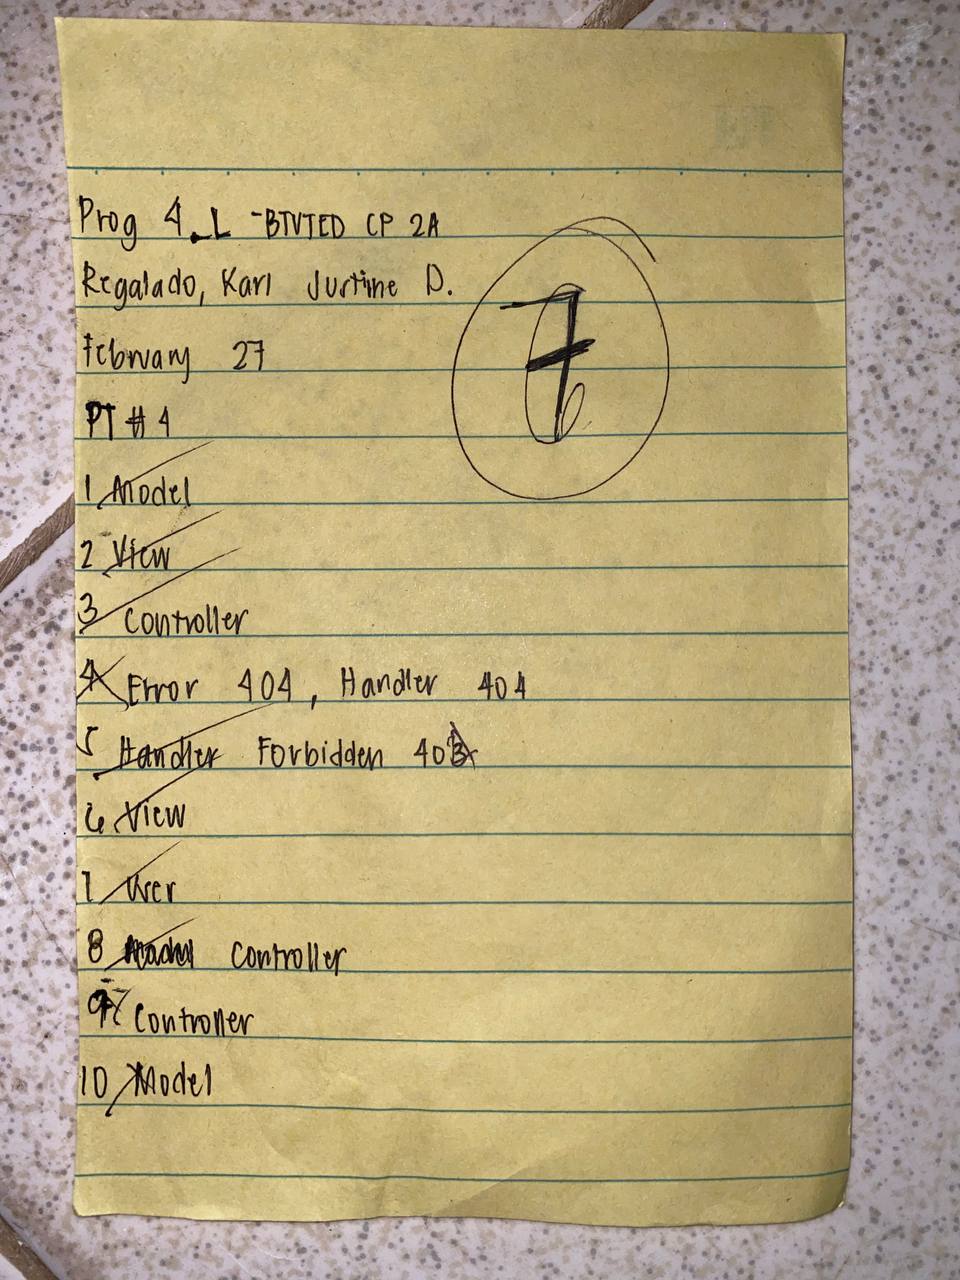 Prog 4_L -BTVTED CP 2A
Regalado, Karl Justine D.
February 27
7
PT # 4
1 Model
2 View
3 Controller
4 Error 404, Handler 404
5 Handler Forbidden 403
6 View
7 User
8 Controller
9 Controller
10 Model